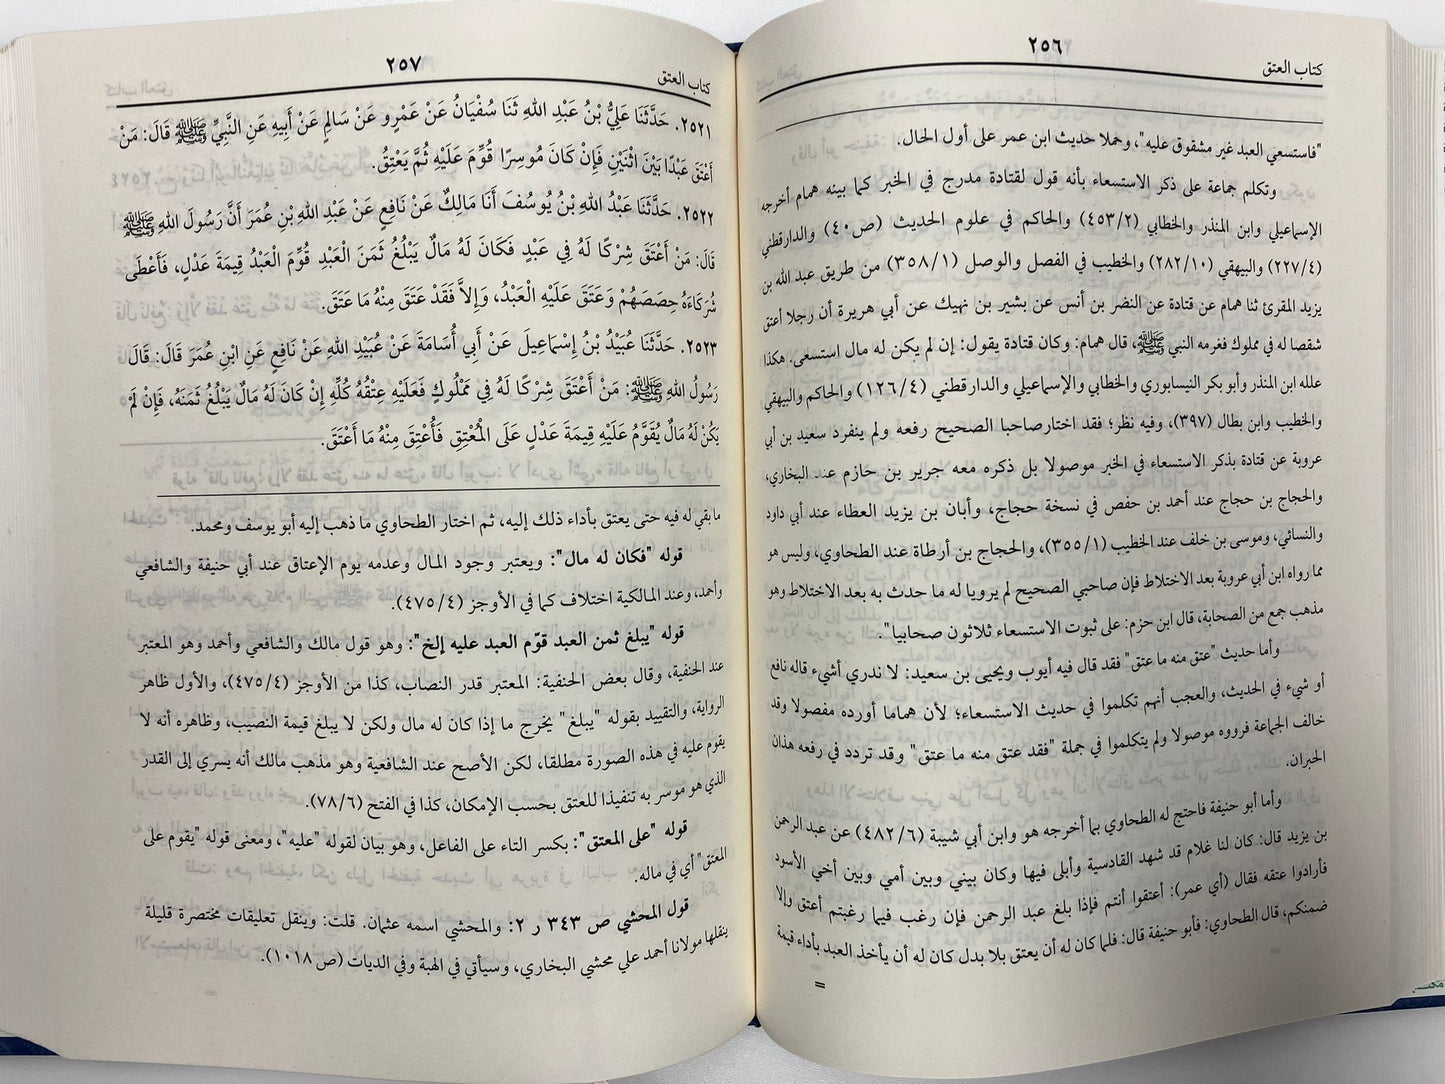 ٢٥٦
كتاب العتق
"فاستسعي العبد غير مشقوق عليه"، وحملا حديث ابن عمر على أول الحال.
وتكلم جماعة على ذكر الاستسعاء بأنه قول لقتادة مدرج في الخبر كما بينه همام أخرجه
الإسماعيلي وابن المنذر والخطابي (٤٥٣/٢) والحاكم في علوم الحديث (ص٤٠) والدارقطني
(٢٢٧/٤) والبيهقي (٢٨٢/١٠) والخطيب في الفصل والوصل (٣٥٨/١) من طريق عبد الله بن
يزيد المقرئ ثنا همام عن قتادة عن النضر بن أنس عن بشير بن نهيك عن أبي هريرة أن رجلا أعتق
شقصا له في مملوك فغرمه النبي ﷺ، قال همام: وكان قتادة يقول: إن لم يكن له مال استسعى. هكذا
علله ابن المنذر وأبو بكر النيسابوري والخطابي والإسماعيلي والدارقطني (١٢٦/٤) والحاكم والبيهقي
والخطيب وابن بطال (٣٩٧)، وفيه نظر؛ فقد اختارصاحبا الصحيح رفعه ولم ينفرد سعيد بن أبي
عروبة عن قتادة بذكر الاستسعاء في الخبر موصولا بل ذكره معه جرير بن حازم عند البخاري،
والحجاج بن حجاج عند أحمد بن حفص في نسخة حجاج، وأبان بن يزيد العطاء عند أبي داود
والنسائي، وموسى بن خلف عند الخطيب (٣٥٥/١)، والحجاج بن أرطاة عند الطحاوي، وليس هو
مما رواه ابن أبي عروبة بعد الاختلاط فإن صاحبي الصحيح لم يرويا له ما حدث به بعد الاختلاط وهو
مذهب جمع من الصحابة، قال ابن حزم: على ثبوت الاستسعاء ثلاثون صحابيا".
وأما حديث "عتق منه ما عتق" فقد قال فيه أيوب ويحيى بن سعيد: لا ندري أشيء قاله نافع
أو شيء في الحديث، والعجب أنهم تكلموا في حديث الاستسعاء؛ لأن هماما أورده مفصولا وقد
خالف الجماعة فرووه موصولا ولم يتكلموا في جملة "فقد عتق منه ما عتق" وقد تردد في رفعه هذان
الحبران.
وأما أبو حنيفة فاحتج له الطحاوي بما أخرجه هو وابن أبي شيبة (٤٨٢/٦) عن عبد الرحمن
بن يزيد قال: كان لنا غلام قد شهد القادسية وأبلى فيها وكان بيني وبين أمي وبين أخي الأسود
فأرادوا عتقه فقال (أي عمر): أعتقوا أنتم فإذا بلغ عبد الرحمن فإن رغب فيما رغبتم أعتق وإلا
ضمنكم، قال الطحاوي: فأبو حنيفة قال: فلما كان له أن يعتق بلا بدل كان له أن يأخذ العبد بأداء قيمة
=
٢٥٧
كتاب العتق
٢٥٢١. حَدَّثَنَا عَلِيُّ بْنُ عَبْدِ اللهِ ثَنَا سُفْيَانُ عَنْ عَمْرٍو عَنْ سَالِمٍ عَنْ أَبِيهِ عَنِ النَّبِيِّ ﷺ قَالَ: مَنْ
أَعْتَقَ عَبْدًا بَيْنَ اثْنَيْنِ فَإِنْ كَانَ مُوسِرًا قُوِّمَ عَلَيْهِ ثُمَّ يَعْتِقُ.
٢٥٢٢. حَدَّثَنَا عَبْدُ اللهِ بْنُ يُوسُفَ أَنَا مَالِكٌ عَنْ نَافِعٍ عَنْ عَبْدِ اللهِ بْنِ عُمَرَ أَنَّ رَسُولَ اللهِ ﷺ
قَالَ: مَنْ أَعْتَقَ شِرْكًا لَهُ فِي عَبْدٍ فَكَانَ لَهُ مَالٌ يَبْلُغُ ثَمَنَ الْعَبْدِ قُوِّمَ الْعَبْدُ قِيمَةَ عَدْلٍ، فَأَعْطَى
شُرَكَاءَهُ حِصَصَهُمْ وَعَتَقَ عَلَيْهِ الْعَبْدُ، وَإِلاَّ فَقَدْ عَتَقَ مِنْهُ مَا عَتَقَ.
٢٥٢٣. حَدَّثَنَا عُبَيْدُ بْنُ إِسْمَاعِيلَ عَنْ أَبِي أُسَامَةَ عَنْ عُبَيْدِ اللهِ عَنْ نَافِعٍ عَنِ ابْنِ عُمَرَ قَالَ: قَالَ
رَسُولُ اللهِ ﷺ: مَنْ أَعْتَقَ شِرْكًا لَهُ فِي مَمْلُوكٍ فَعَلَيْهِ عِتْقُهُ كُلِّهِ إِنْ كَانَ لَهُ مَالٌ يَبْلُغُ ثَمَنَهُ، فَإِنْ لَمْ
يَكُنْ لَهُ مَالٌ يُقَوَّمُ عَلَيْهِ قِيمَةَ عَدْلٍ عَلَى الْمُعْتِقِ فَأُعْتِقَ مِنْهُ مَا أَعْتَقَ.
ما بقي له فيه حتى يعتق بأداء ذلك إليه، ثم اختار الطحاوي ما ذهب إليه أبو يوسف ومحمد.
قوله "فكان له مال": ويعتبر وجود المال وعدمه يوم الإعتاق عند أبي حنيفة والشافعي
وأحمد، وعند المالكية اختلاف كما في الأوجز (٤٧٥/٤).
قوله "يبلغ ثمن العبد قوّم العبد عليه إلخ": وهو قول مالك والشافعي وأحمد وهو المعتبر
عند الحنفية، وقال بعض الحنفية: المعتبر قدر النصاب، كذا من الأوجز (٤٧٥/٤)، والأول ظاهر
الرواية، والتقييد بقوله "يبلغ" يخرج ما إذا كان له مال ولكن لا يبلغ قيمة النصيب، وظاهره أنه لا
يقوم عليه في هذه الصورة مطلقا، لكن الأصح عند الشافعية وهو مذهب مالك أنه يسري إلى القدر
الذي هو موسر به تنفيذا للعتق بحسب الإمكان، كذا في الفتح (٧٨/٦).
قوله "على المعتق": بكسر التاء على الفاعل، وهو بيان لقوله "عليه"، ومعنى قوله "يقوم على
المعتق" أي في ماله.
قول المحشي ص ٣٤٣ ر ٢: والمحشي اسمه عثمان. قلت: وينقل تعليقات مختصرة قليلة
ينقلها مولانا أحمد علي محشي البخاري، وسيأتي في الهبة وفي الديات (ص ١٠١٨).